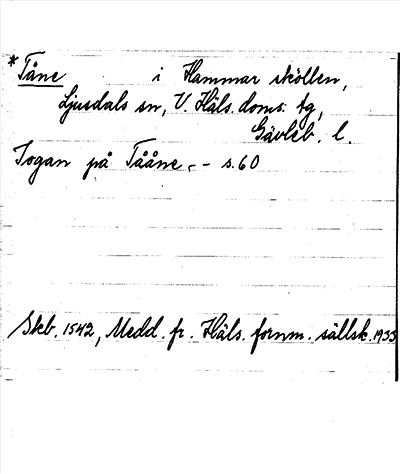 *Tåne i Hammar skóllen,
Ljusdals sn, V. Häls. doms. tg,
Gävleb. l.
Jogan på Tååne, - s. 60
Skb. 1542, Medd. fr. Häls. fornm. sällsk. 1933